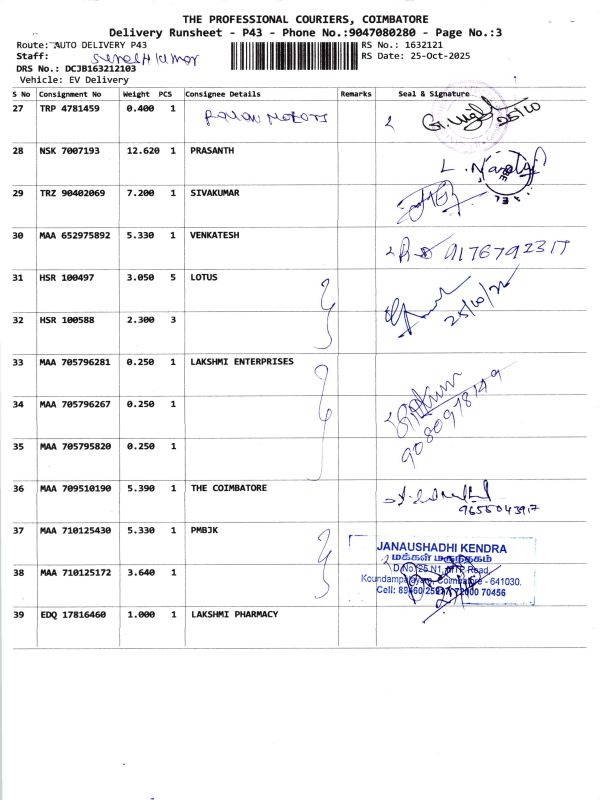 THE PROFESSIONAL COURIERS, COIMBATORE
Delivery Runsheet - P43 - Phone No.:9047080280 - Page No.:3
Route: AUTO DELIVERY P43 RS No.: 1632121
Staff: Suresh Kumar RS Date: 25-Oct-2025
DRS No.: DCJB163212103
Vehicle: EV Delivery
S No Consignment No Weight PCS Consignee Details Remarks Seal & Signature
27 TRP 4781459 0.400 1 25/10
28 NSK 7007193 12.620 1 PRASANTH
29 TRZ 90402069 7.200 1 SIVAKUMAR
30 MAA 652975892 5.330 1 VENKATESH 9176792317
31 HSR 100497 3.050 5 LOTUS
32 HSR 100588 2.300 3
33 MAA 705796281 0.250 1 LAKSHMI ENTERPRISES
34 MAA 705796267 0.250 1
35 MAA 705795820 0.250 1
36 MAA 709510190 5.390 1 THE COIMBATORE
37 MAA 710125430 5.330 1 PMBJK
JANAUSHADHI KENDRA
மக்கள் மருந்தகம்
38 MAA 710125172 3.640 1
Coimbatore - 641030.
39 EDQ 17816460 1.000 1 LAKSHMI PHARMACY